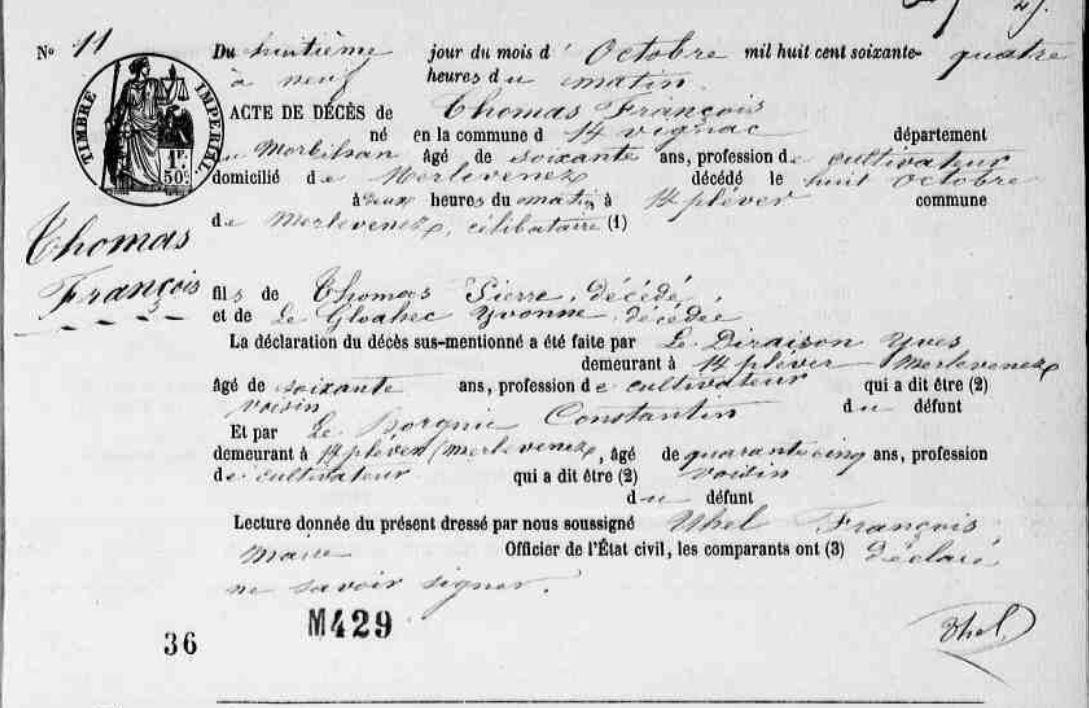 Nº 11
Du huitième jour du mois d' Octobre mil huit cent soixante-quatre
à neuf heures du matin.
TIMBRE IMPERIAL
1F. 50C.
ACTE DE DÉCÈS de Thomas François
né en la commune d St vignac département
du Morbihan âgé de soixante ans, profession de cultivateur
domicilié de Merlevenez décédé le huit Octobre
à deux heures du matin à St pléver commune
de Merlevenez, célibataire (1)
Thomas
François
fils de Thomas Pierre, décédé,
et de Le Gloahec Yvonne, décédée
La déclaration du décès sus-mentionné a été faite par Le Diraison Yves
demeurant à St pléver Merlevenez
âgé de soixante ans, profession de cultivateur qui a dit être (2)
voisin du défunt
Et par Le Borgnic Constantin
demeurant à St pléver (merlevenez, âgé de quarante cinq ans, profession
de cultivateur qui a dit être (2) voisin
du défunt
Lecture donnée du présent dressé par nous soussigné Uhel François
maire Officier de l'État civil, les comparants ont (3) déclaré
ne savoir signer.
36 M429 Uhel